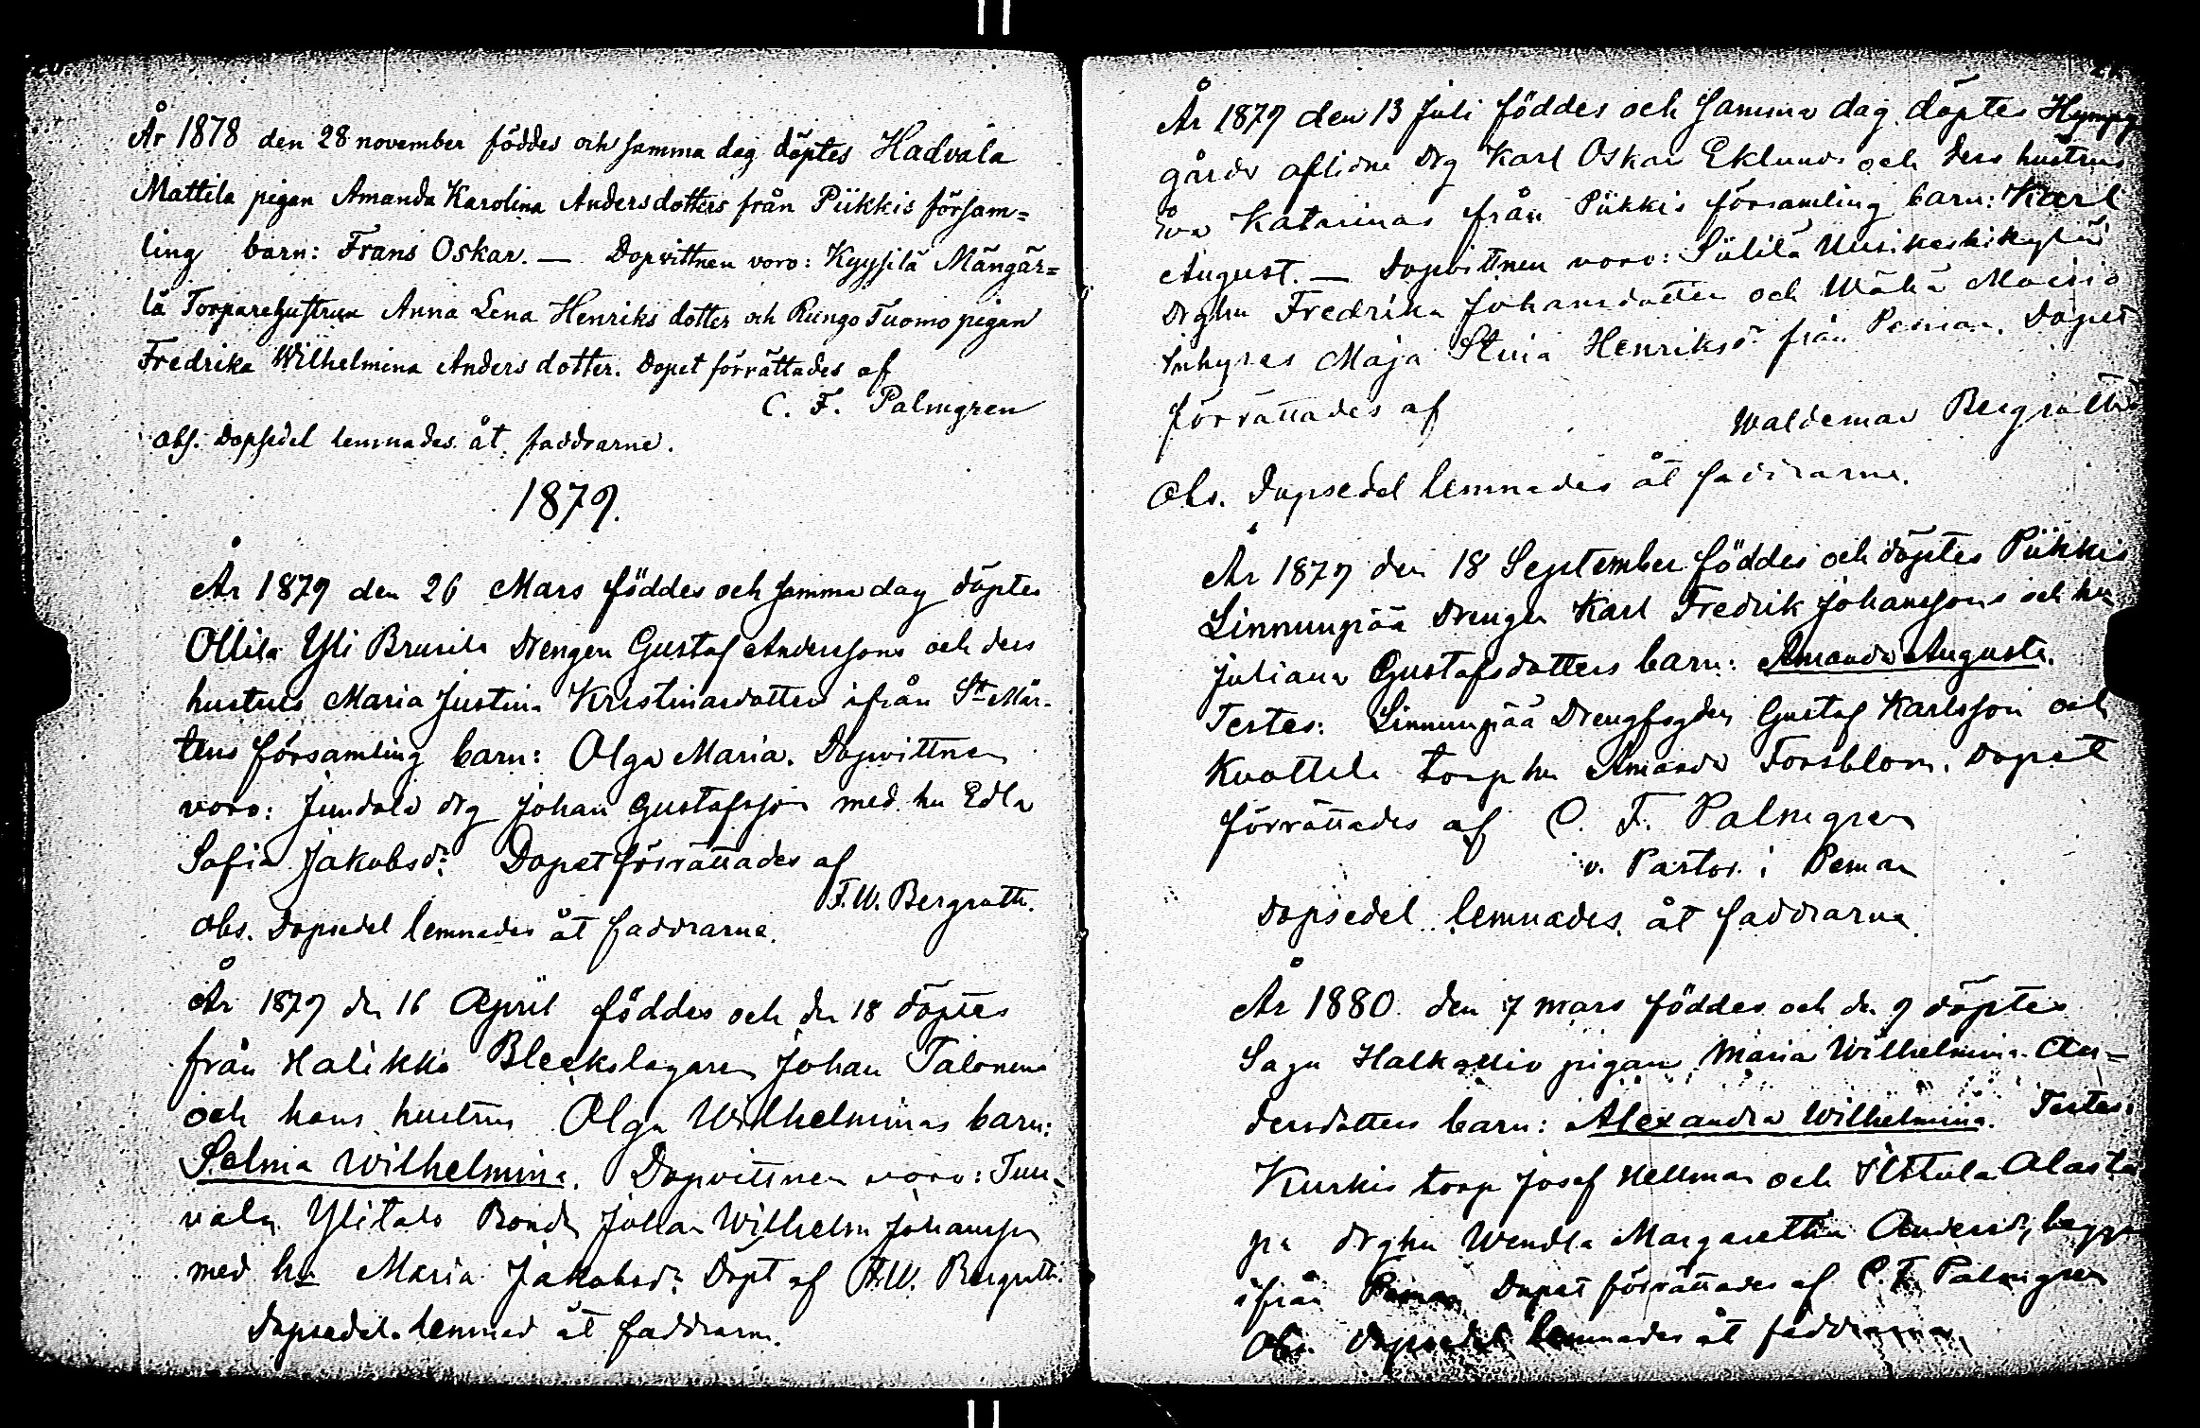 År 1878 den 28 november föddes och samma dag döptes Hadvala
Mattila pigan Amanda Karolina Andersdotters från Piikkis försam=
ling barn: Frans Oskar. — Dopvittnen voro: Kyysilä Mängär=
lä Torparehustrun Anna Lena Henriks dotter och Rungo Tuomo pigan
Fredrika Wilhelmina Anders dotter. Dopet förrättades af
C. F. Palmgren
Obs. Dopsedel lemnades åt faddrarne.
1879.
År 1879 den 26 Mars föddes och samma dag döptes
Ollila Yli Brusila Drengen Gustaf Anderssons och ders
hustrus Maria Justina Kristinasdotters ifrån St Mår-
tens församling barn: Olga Maria. Dopvittnen
voro: Juvdala drg Johan Gustafsson med hu Edla
Sofia Jakobsdr. Dopet förrättades af
F. W. Bergroth.
Obs. Dopsedel lemnades åt faddrarne.
År 1879 dn 16 April föddes och dn 18 döptes
från Halikko Bleckslagaren Johan Talonens
och hans hustrus Olga Wilhelminas barn:
Selma Wilhelmina. Dopvittnen voro:
Ylitalo Bonden Johan Wilhelm Johansson
med hu Maria Jakobsdr. Döpt af F.W. Bergroth.
Dopsedel lemnad åt faddrarne.
År 1879 den 13 Juli föddes och samma dag döptes
gårds aflidne drg Karl Oskar Eklunds och ders hustrus
Eva Katarinas från Piikkis församling barn: Karl
August. — Dopvittnen voro:
drghu Fredrika Johansdotter och Wähä Moisio
inhyses Maja Stina Henriksdr från Pemar. Dopet
förrättades af
Waldemar Bergroth
Obs. Dopsedel lemnades åt faddrarne.
År 1879 den 18 September föddes och döptes Piikkis
Linnunpää Drengen Karl Fredrik Johanssons och hu
Juliana Gustafsdotters barn: Amanda Augusta.
Testes: Linnunpää Drengfogden Gustaf Karlsson och
torphu Amanda Forsblom. Dopet
förrättades af C. F. Palmgren
v. Pastor i Pemar
Dopsedel lemnades åt faddrarne.
År 1880 den 7 mars föddes och dn 9 döptes
Sagu Halkollio pigans Maria Wilhelmina An-
dersdotters barn: Alexandra Wilhelmina. Testes:
Kurkis torp Josef Hellman och
drghu Wendla Margaretha Andersdr, begge
ifrån Pemar Dopet förrättades af C. F. Palmgren
Obs. Dopsedel lemnades åt faddrarne.